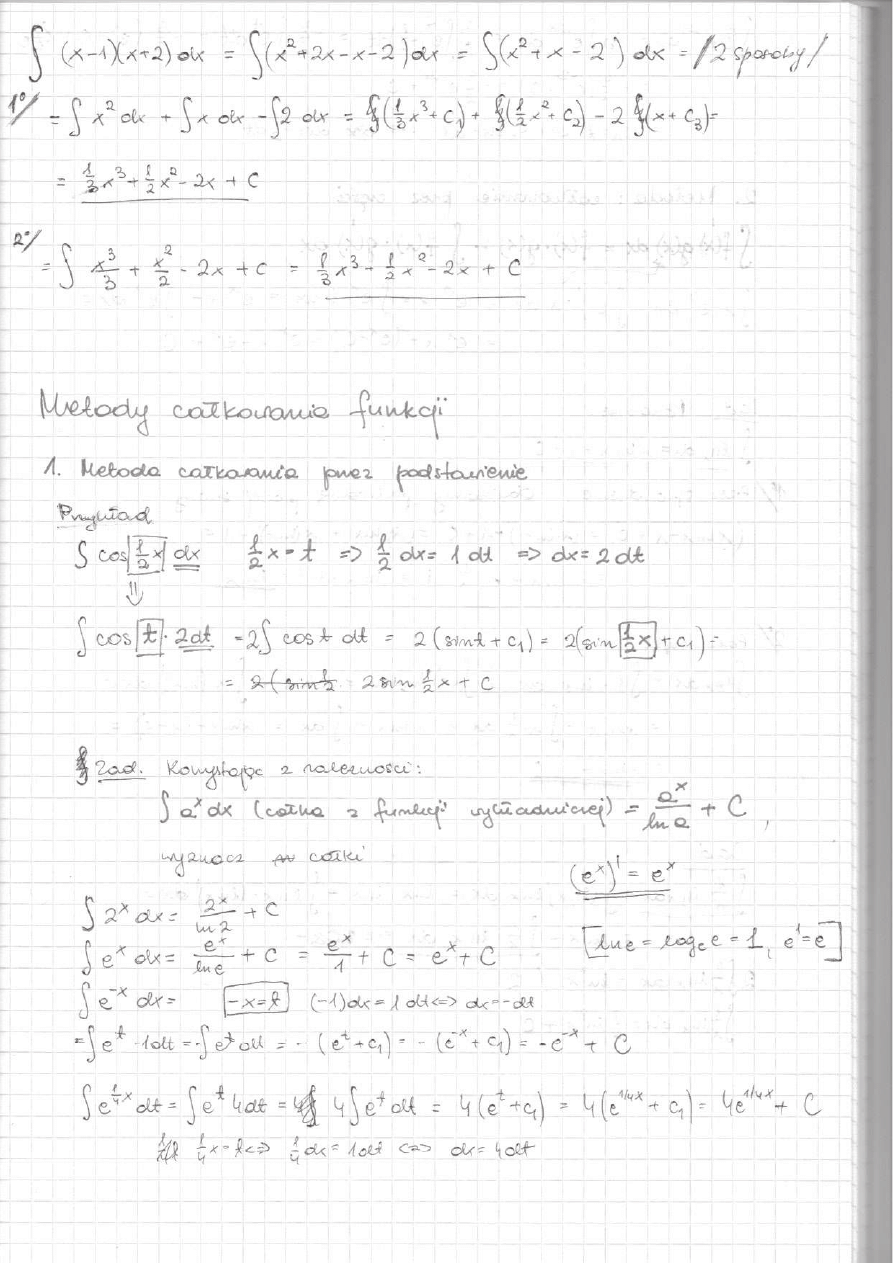 ∫ (x-1)(x+2) dx = ∫(x²+2x-x-2)dx = ∫(x²+x-2) dx = /2 sposoby/
1°/ = ∫ x² dx + ∫ x dx - ∫2 dx = (1/3 x³ + C₁) + (1/2 x² + C₂) - 2 (x + C₃) =
= 1/3 x³ + 1/2 x² - 2x + C
2°/ = ∫ x³/3 + x²/2 - 2x + C = 1/3 x³ + 1/2 x² - 2x + C
Metody całkowania funkcji
1. Metoda całkowania przez podstawienie
Przykład
∫ cos 1/2 x dx 1/2 x = t => 1/2 dx = 1 dt => dx = 2 dt
⇓
∫ cos t · 2dt = 2∫ cos t dt = 2 (sin t + C₁) = 2(sin 1/2 x + C₁) =
= 2 (sin 1/2 2 sin 1/2 x + C
Zad. Korzystając z zależności:
∫ aˣ dx (całka z funkcji wykładniczej) = aˣ/ln a + C,
wyznacz całki
(eˣ)' = eˣ
∫ 2ˣ dx = 2ˣ/ln 2 + C
[ln e = logₑ e = 1, e¹ = e]
∫ eˣ dx = eˣ/ln e + C = eˣ/1 + C = eˣ + C
∫ e⁻ˣ dx = -x = t (-1)dx = 1 dt <=> dx = -dt
= ∫ eᵗ · -1dt = -∫ eᵗ dt = - (eᵗ + C₁) = - (e⁻ˣ + C₁) = -e⁻ˣ + C
∫ e^(1/4 x) dt = ∫ eᵗ 4dt = 4 ∫ eᵗ dt = 4 (eᵗ + C₁) = 4 (e^(1/4x) + C₁) = 4e^(1/4x) + C
1/4 x = t <=> 1/4 dx = 1dt <=> dx = 4dt